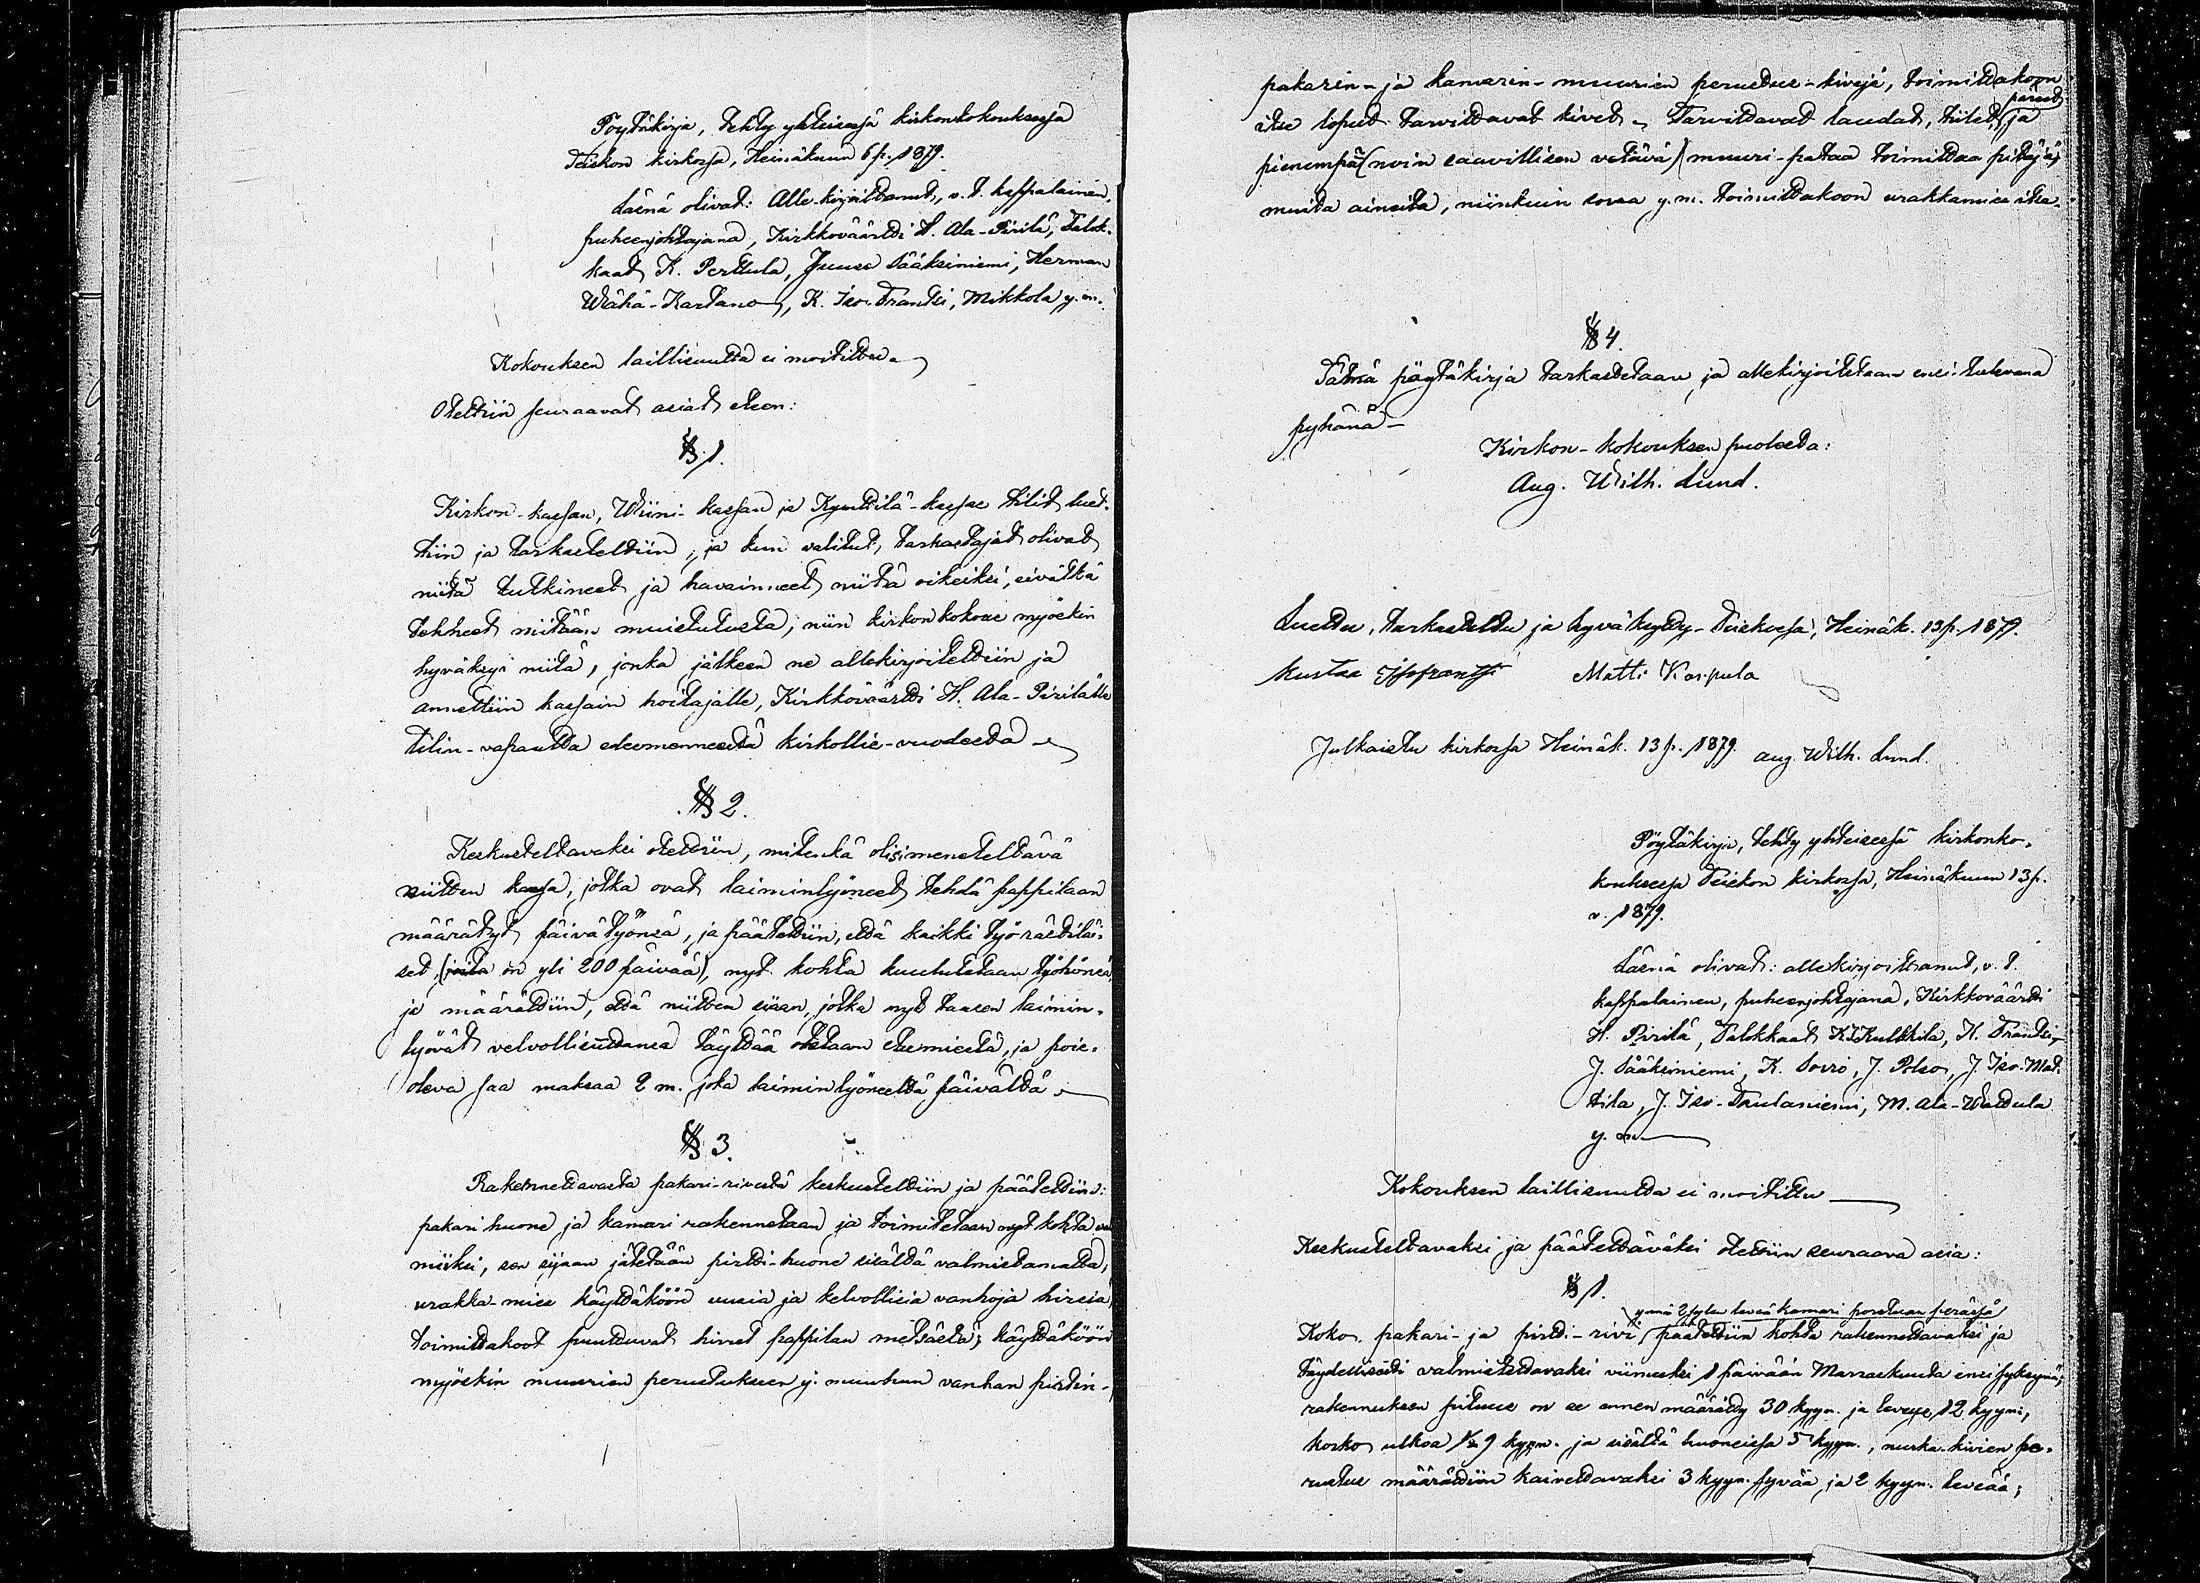 Pöytäkirja, tehty yhteisessä kirkonkokouksessa
Teiskon kirkossa, Heinäkuun 6 p. 1879.
Läsnä olivat: Allekirjoittanut, v. t. kappalainen,
puheenjohtajana, Kirkkoväärti H. Ala-Pirilä, Talok-
kaat K. Perttula, Juuse Sääksiniemi, Herman
Wähä-Kartano, K. Iso-Frantsi, Mikkola y. m.
Kokouksen laillisuutta ei moitittu.
Otettiin seuraavat asiat eteen:
§ 1.
Kirkon-kassan, Wiini-kassan ja Kynttilä-kassan tilit luet-
tiin ja tarkasteltiin; ja kun valitut tarkastajat olivat
niitä tutkineet ja havainneet niitä oikeiksi, eivätkä
tehneet mitään muistutusta; niin kirkonkokous myöskin
hyväksyi niitä, jonka jälkeen ne allekirjoitettiin ja
annettiin kassain hoitajalle, Kirkkoväärti H. Ala-Pirilälle
tilin-vapautta edesmenneestä kirkollis-vuodesta
§ 2.
Keskusteltavaksi otettiin, mitenkä olisi meneteltävä
niitten kanssa, jotka ovat laiminlyöneet tehdä pappilaan
määrätyt päivätyönsä, ja päätettiin, että kaikki työ-rästiläi-
set, (joita on yli 200 päivää), nyt kohta kuulutetaan työhönsä,
ja määrättiin, että niitten sijaan, jotka nyt taasen laimin-
lyövät velvollisuuttansa täyttää otetaan etumiestä, ja pois-
oleva saa maksaa 2 m. joka laiminlyöneeltä päivältä
§ 3.
Rakennettavasta pakari-rivestä keskusteltiin ja päätettiin:
pakari huone ja kamari rakennetaan ja toimitetaan nyt kohta val
miiksi, sen sijaan jätetään pirtti-huone sisältä valmistamatta,
urakka-mies käyttäköön uusia ja kelvollisia vanhoja hirsia,
toimittakoot puuttuvat hirret pappilan metsästä; käyttäköön
myöskin muurien perustukseen y. muuhun vanhan pirtin-
pakarin- ja kamarin-muurien perustus-kivejä, toimittakoon
itse loput tarvittavat kivet. Tarvittavat laudat, tiilet, pärret ja
pienempää (noin saavillisen vetävä) muuri-pataa toimittaa pitäjä;
muita aineita, niinkuin savea y. m. toimittakoon urakkamies itse.
§ 4.
Tätmä pöytäkirja tarkastetaan ja allekirjoitetaan ensi-tulevana
pyhänä
Kirkon-kokouksen puolesta:
Aug. Wilh. Lund.
Luettu, tarkastettu ja hyväksytty Teiskossa, Heinäk. 13 p. 1879.
Kustaa Matti Karpula
Julkaistu kirkossa Heinäk. 13 p. 1879. Aug. Wilh. Lund.
Pöytäkirja, tehty yhteisessä kirkonko-
kouksessa Teiskon kirkossa, Heinäkuun 13 p.
v. 1879.
Läsnä olivat: allekirjoittanut, v. t.
kappalainen, puheenjohtajana, Kirkkoväärti
H. Pirilä, Talokkaat K. Kulkkila, K. Frantsi,
J. Sääksiniemi, K. Sovio, J. Polso, J. Iso-Mat-
tila, J. Iso-Taulaniemi, M. Ala-Waltula
y. m.
Kokouksen laillisuutta ei moitittu
Keskusteltavaksi ja päätettäväksi otettiin seuraava asia:
§ 1.
ynnä 2 sylen leveä kamari porstuan perässä
Koko pakari- ja pirtti-rivi päätettiin kohta rakennettavaksi ja
täydellisesti valmistettavaksi viimeksi 1 päivään Marraskuuta ensi syksynä;
rakennuksen pituus on se ennen määrätty 30 kyyn. ja leveys 12 kyyn.;
korko ulkoa 9 kyyn. ja sisältä huoneissa 5 kyyn., nurka-kivien pe-
rustus määrättiin kaivettavaksi 3 kyyn. syvää ja 2 kyyn. leveää;